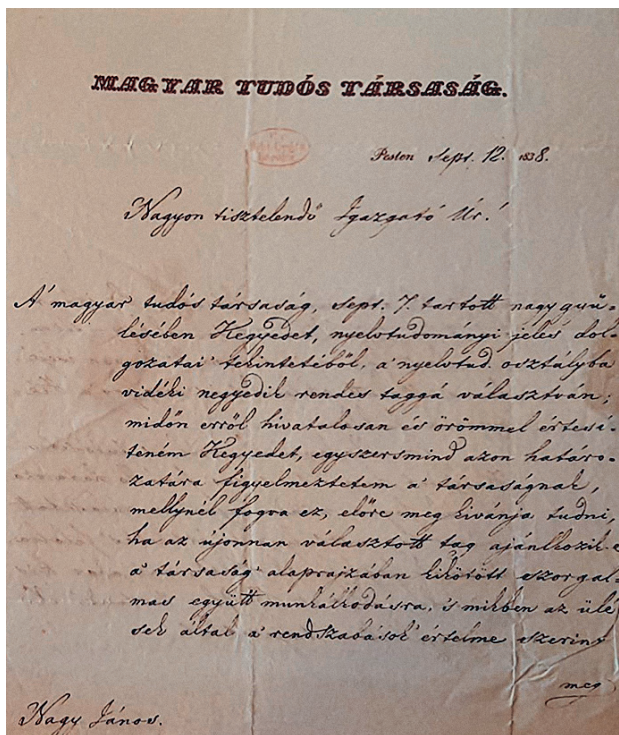 MAGYAR TUDÓS TÁRSASÁG.
Pesten Sept. 12. 1838.
Nagyon tisztelendő Igazgató Úr!
A' magyar tudós társaság, sept. 7. tartott nagy gyü-
lésében Kegyedet, nyelvtudományi jeles dol-
gozatai' tekintetéből, a' nyelvtud. osztályba
vidéki negyedik rendes taggá választván;
midőn erről hivatalosan és örömmel értesí-
teném Kegyedet, egyszersmind azon határo-
zatára figyelmeztetem a' társaságnak,
mellynél fogva ez, előre meg kivánja tudni,
ha az újonnan választott tag ajánlkozik e
a' társaság' alaprajzában kikötött szorgal-
mas együtt munkálkodásra, 's mikben az ülé
sek által a' rendszabások' értelme szerint
meg
Nagy János.